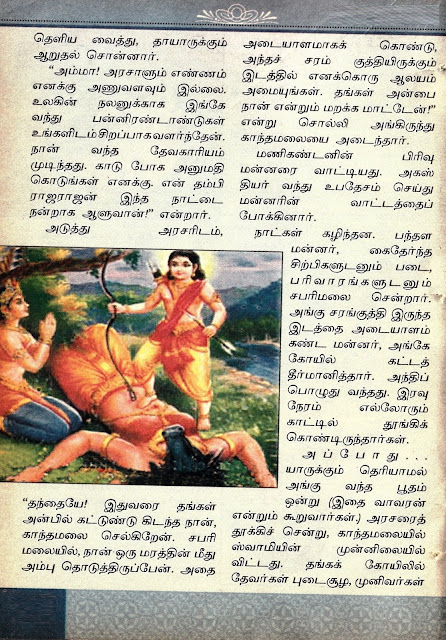 தெளிய வைத்து, தாயாருக்கும்
ஆறுதல் சொன்னார்.
“அம்மா! அரசாளும் எண்ணம்
எனக்கு அணுவளவும் இல்லை.
உலகின் நலனுக்காக இங்கே
வந்து பன்னிரண்டாண்டுகள்
உங்களிடம்சிறப்பாகவளர்ந்தேன்.
நான் வந்த தேவகாரியம்
முடிந்தது. காடு போக அனுமதி
கொடுங்கள் எனக்கு. என் தம்பி
ராஜராஜன் இந்த நாட்டை
நன்றாக ஆளுவான்!” என்றார்.
அடுத்து அரசரிடம்,
“தந்தையே! இதுவரை தங்கள்
அன்பில் கட்டுண்டு கிடந்த நான்,
காந்தமலை செல்கிறேன். சபரி
மலையில், நான் ஒரு மரத்தின் மீது
அம்பு தொடுத்திருப்பேன். அதை
அடையாளமாகக் கொண்டு,
அந்தச் சரம் குத்தியிருக்கும்
இடத்தில் எனக்கொரு ஆலயம்
அமையுங்கள். தங்கள் அன்பை
நான் என்றும் மறக்க மாட்டேன்!”
என்று சொல்லி அங்கிருந்து
காந்தமலையை அடைந்தார்.
மணிகண்டனின் பிரிவு
மன்னரை வாட்டியது. அகஸ்
தியர் வந்து உபதேசம் செய்து
மன்னரின் வாட்டத்தைப்
போக்கினார்.
நாட்கள் கழிந்தன. பந்தள
மன்னர், கைதேர்ந்த
சிற்பிகளுடனும் படை,
பரிவாரங்களுடனும்
சபரிமலை சென்றார்.
அங்கு சரங்குத்தி இருந்த
இடத்தை அடையாளம்
கண்ட மன்னர், அங்கே
கோயில் கட்டத்
தீர்மானித்தார். அந்திப்
பொழுது வந்தது. இரவு
நேரம் எல்லோரும்
காட்டில் தூங்கிக்
கொண்டிருந்தார்கள்.
அப்போது...
யாருக்கும் தெரியாமல்
அங்கு வந்த பூதம்
ஒன்று (இதை வாவரன்
என்றும் கூறுவார்கள்.) அரசரைத்
தூக்கிச் சென்று, காந்தமலையில்
ஸ்வாமியின் முன்னிலையில்
விட்டது. தங்கக் கோயிலில்
தேவர்கள் புடைசூழ, முனிவர்கள்